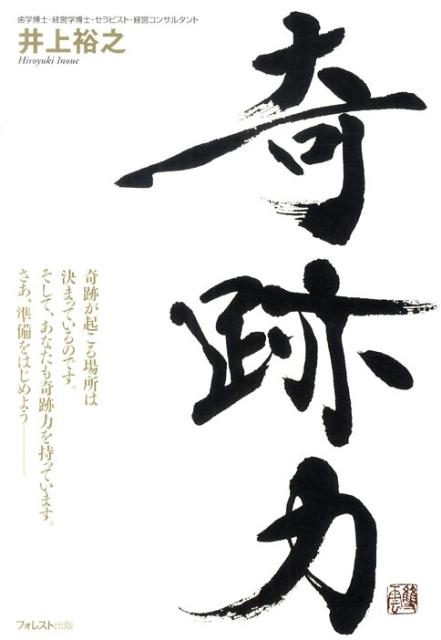 歯学博士・経営学博士・セラピスト・経営コンサルタント
井上裕之
Hiroyuki Inoue
奇跡力
奇跡が起こる場所は
決まっているのです。
そして、あなたも奇跡力を持っています。
さあ、準備をはじめよう――
フォレスト出版